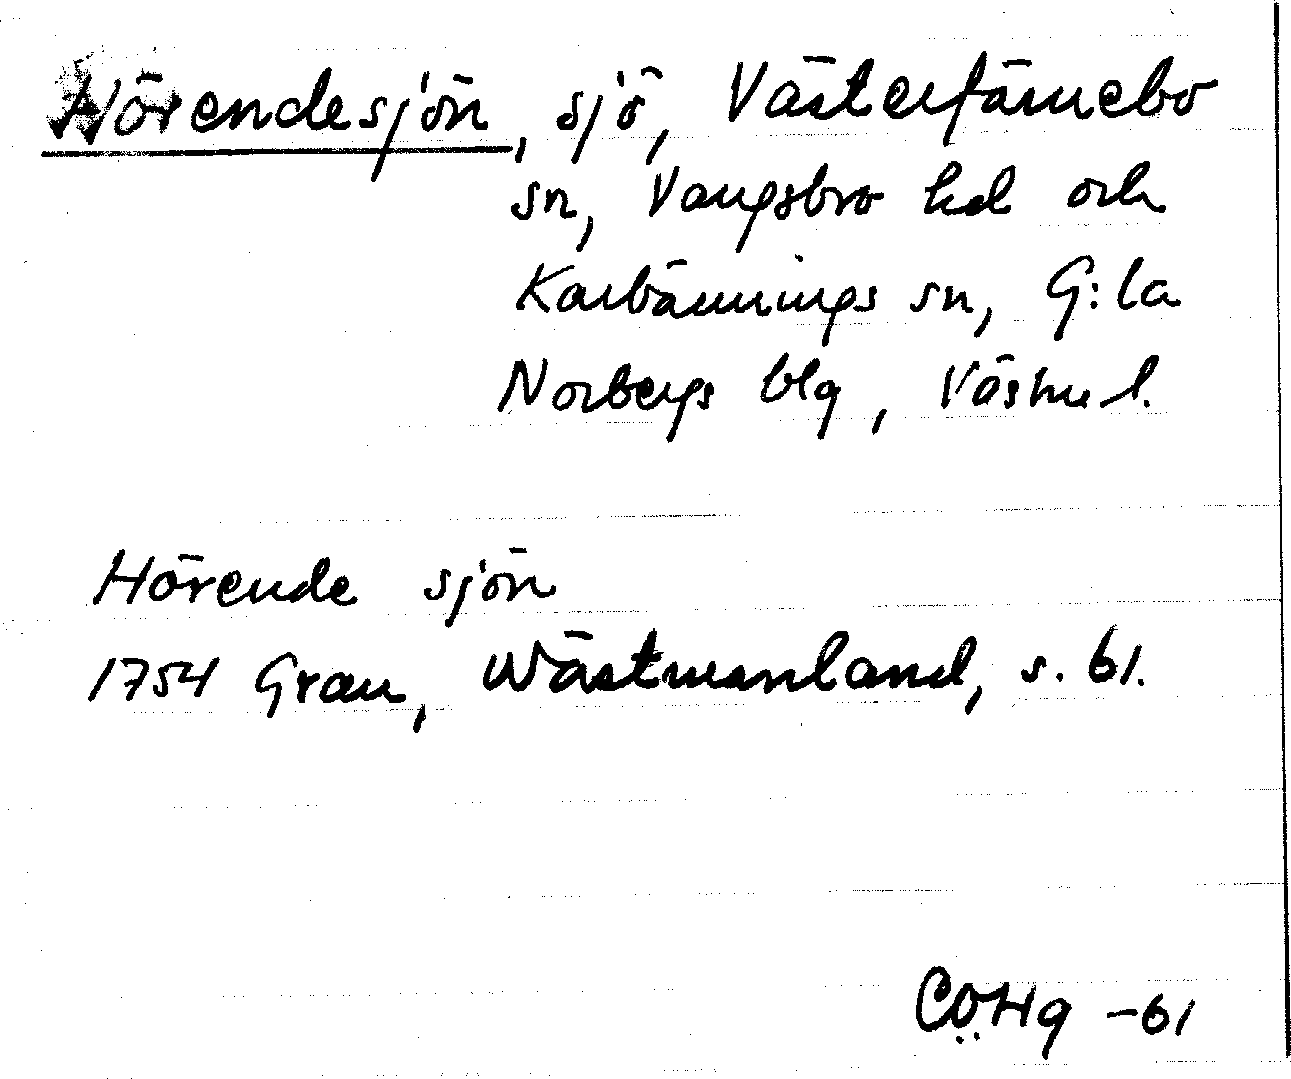 Hörendesjön, sjö, Västerfärnebo
sn, Vangsbro hd och
Karbännings sn, G:la
Norbergs blg, Västm l.
Hörende sjön
1754 Grau, Wästmanland, s. 61.
CÖHg -61